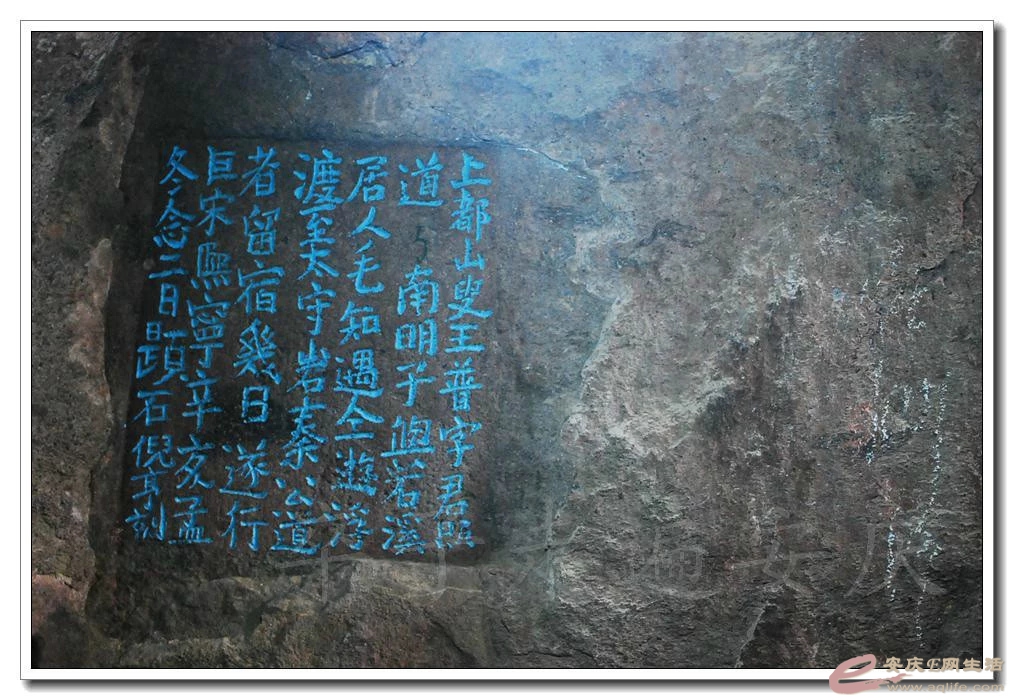 上都山叟王普字君照
道 南明子與若溪
居人毛知遇仝遊浮
渡至太守岩秦公道
者留宿幾日遂行
巨宋熙寧辛亥孟
冬念二日題石倪亨刻
安庆E网生活
www.aqlife.com